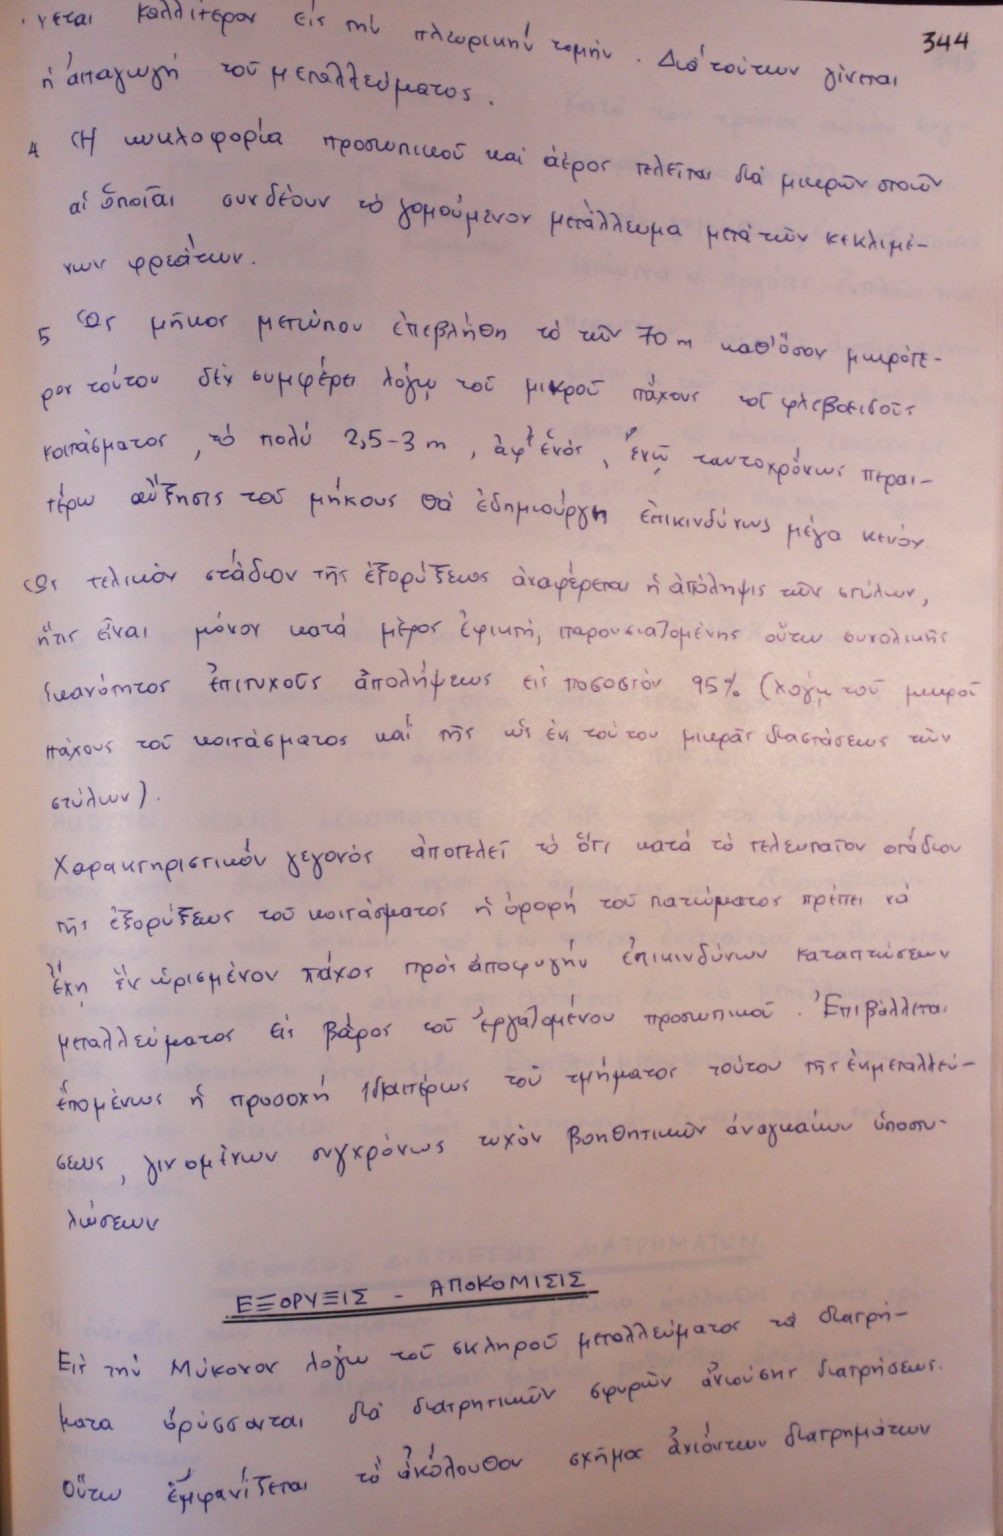 344
νεται καλλίτερον εἰς τήν πλευρικήν τομήν. Διά τούτων γίνεται
ἡ ἀπαγωγή τοῦ μεταλλεύματος.
4 Ἡ κυκλοφορία προσωπικοῦ καί ἀέρος τελεῖται διά μικρῶν στοῶν
αἱ ὁποῖαι συνδέουν τό γομούμενον μετάλλευμα μετά τῶν κεκλιμέ-
νων φρεάτων.
5 Ὡς μῆκος μετώπου ἐπεβλήθη τό τῶν 70 m καθ' ὅσον μικρότε-
ρον τούτου δέν συμφέρει λόγῳ τοῦ μικροῦ πάχους τοῦ φλεβοειδοῦς
κοιτάσματος, τό πολύ 2,5-3 m, ἀφ' ἑνός, ἐνῷ ταυτοχρόνως περαι-
τέρω αὔξησις τοῦ μήκους θά ἐδημιούργη ἐπικινδύνως μέγα κενόν
Ὡς τελικόν στάδιον τῆς ἐξορύξεως ἀναφέρεται ἡ ἀπόληψις τῶν στύλων,
ἥτις εἶναι μόνον κατά μέρος ἐφικτή, παρουσιαζομένης οὕτω συνολικῆς
ἱκανότητος ἐπιτυχοῦς ἀπολήψεως εἰς ποσοστόν 95% (λόγῳ τοῦ μικροῦ
πάχους τοῦ κοιτάσματος καί τῆς ὡς ἐκ τούτου μικρᾶς διαστάσεως τῶν
στύλων).
Χαρακτηριστικόν γεγονός ἀποτελεῖ τό ὅτι κατά τό τελευταῖον στάδιον
τῆς ἐξορύξεως τοῦ κοιτάσματος ἡ ὀροφή τοῦ πατώματος πρέπει νά
ἔχῃ ἕν ὡρισμένον πάχος πρός ἀποφυγήν ἐπικινδύνων καταπτώσεων
μεταλλεύματος εἰς βάρος τοῦ ἐργαζομένου προσωπικοῦ. Ἐπιβάλλεται
ἑπομένως ἡ προσοχή ἰδιαιτέρως τοῦ τμήματος τούτου τῆς ἐκμεταλλεύ-
σεως, γινομένων συγχρόνως τυχόν βοηθητικῶν ἀναγκαίων ὑποστυ-
λώσεων
ΕΞΟΡΥΞΙΣ - ΑΠΟΚΟΜΙΣΙΣ
Εἰς τήν Μύκονον λόγω τοῦ σκληροῦ μεταλλεύματος τά διατρή-
ματα ὀρύσσονται διά διατρητικῶν σφυρῶν ἀνιούσης διατρήσεως.
Οὕτω ἐμφανίζεται τό ἀκόλουθον σχῆμα ἀνιόντων διατρημάτων